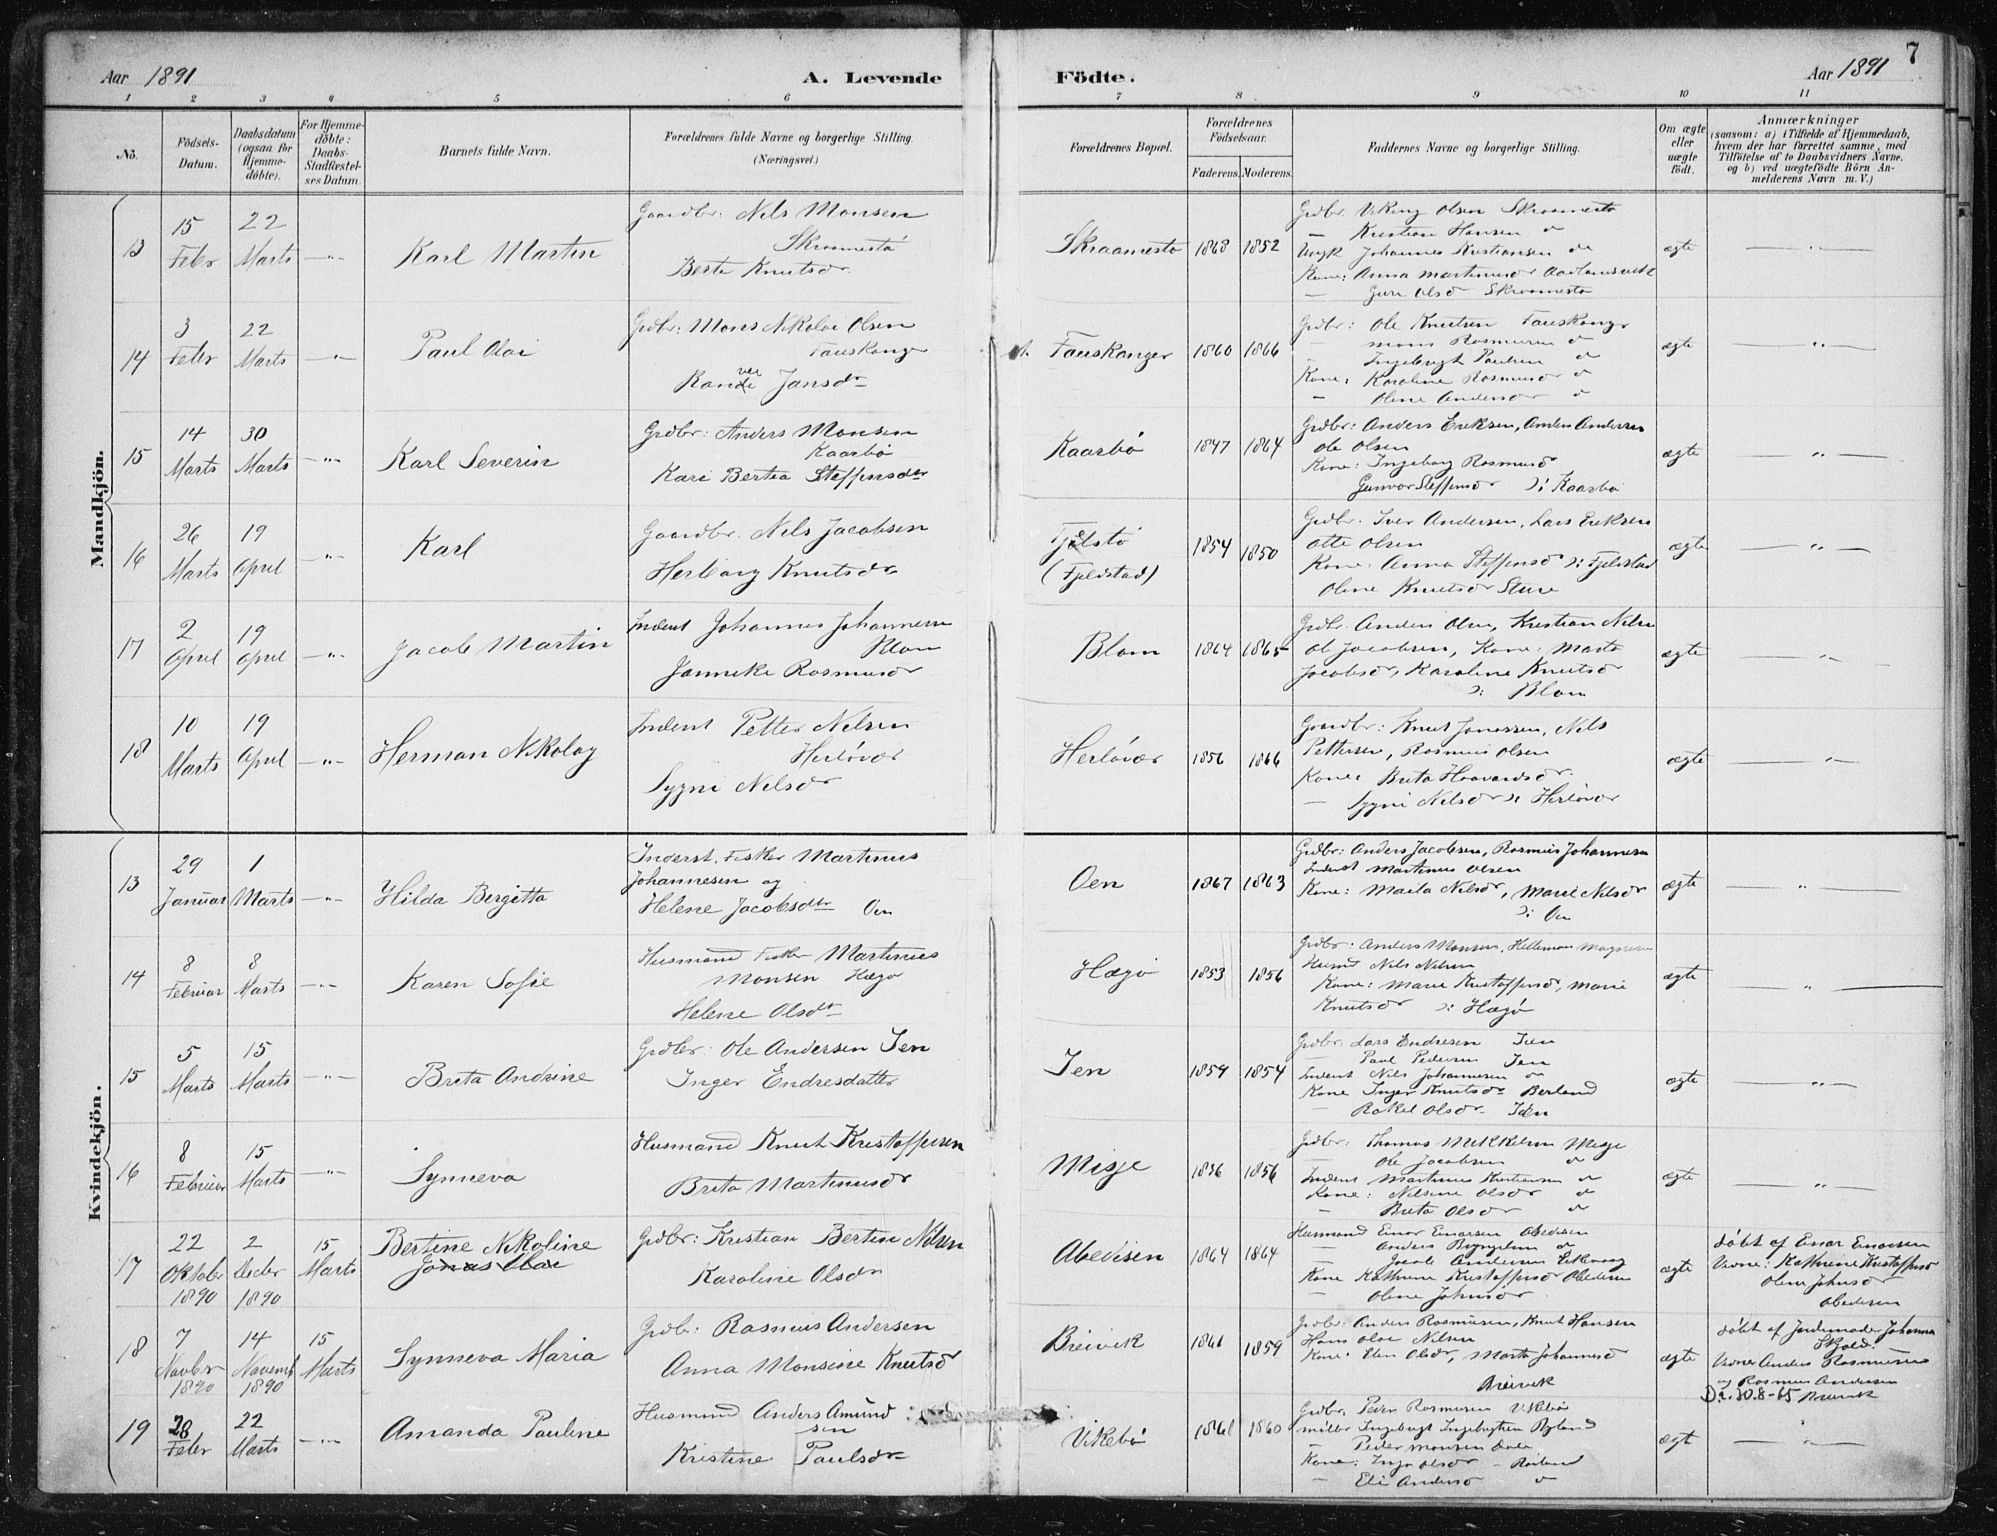 Aar 1891
A. Levende
Födte.
Aar 1891
7
1 2 3 4 5 6 7 8 9 10 11
No.
Födsels-
Datum.
Daabsdatum
(ogsaa for
Hjemme-
döbte).
For Hjemme-
döbte:
Daabs-
Stadfæstel-
ses Datum.
Barnets fulde Navn.
Forældrenes fulde Navne og borgerlige Stilling.
(Næringsvei.)
Forældrenes Bopæl.
Forældrenes
Födselsaar.
Faderens. Moderens.
Faddernes Navne og borgerlige Stilling.
Om ægte
eller
uægte
födt.
Anmærkninger
(saasom: a) i Tilfælde af Hjemmedaab,
hvem der har forrettet samme, med
Tilföielse af to Daabsvidners Navne,
og b) ved uægtefödte Börn An-
melderens Navn m. V.)
Mandkjön.
13
15
Febr
22
Marts
Karl Martin
Gaardbr: Nils Monsen
Skraamestø
Berte Knutsdr
Skraamestø
1868 1852
Grdbr. Viking Olsen Skraamestø
— Kristian Hansen do
Ungk Johannes Kristiansen do
Kone: Anna Martinusdr Aadlandsvik
— Guri Olsd Skraamestø
ægte
14
3
Febr
22
Marts
Paul Olai
Grdbr: Mons Nikolai Olsen
Fauskanger
Jansdr
Fauskanger
1860 1866
Grdbr: Ole Knutsen Fauskanger
— Mons Rasmussen do
— Ingebrigt Paulsen do
Kone: Karoline Rasmusdr do
— Oline Andersdr do
ægte
15
14
Marts
30
Marts
Karl Severin
Grdbr: Anders Monsen
Kaarbø
Kari Bertea Steffensdtr
Kaarbø
1847 1864
Grdbr: Anders Eriksen, Anders Andersen
Ole Olsen
Kone: Ingeborg Rasmusd
Gunvor Steffensdr ɔ: Kaarbø
ægte
16
26
Marts
19
April
Karl
Gaardbr. Nils Jacobsen
Herborg Knutsdr
Fjelstø
(Fjeldstad)
1854 1850
Grdbr. Iver Andersen, Lars Eriksen
Otte Olsen
Kone: Anna Steffensd ɔ: Fjeldstad
Oline Knutsdr Sture
ægte
17
2
April
19
April
Jacob Martin
Inderst Johannes Johannesen
Blom
Janneke Rasmusdr
Blom
1864 1865
Grdbr. Anders Olsen, Kristian Nilsen
Ole Jacobsen, Kone: Marta
Jacobsdr, Karoline Knutsdr
ɔ: Blom
ægte
18
10
Marts
19
April
Herman Nikolay
Inderst Petter Nilsen
Herløvær
Sygni Nilsdr
Herløvær
1856 1866
Gaardbr: Knut Jonassen, Nils
Pettersen, Rasmus Olsen
Kone: Brita Haavardsdr
— Sygni Nilsdr ɔ: Herløvær
ægte
Kvindekjön.
13
29
Januar
1
Marts
Hilda Bergitta
Inderst, Fisker Martinus
Johannesen og
Helene Jacobsdtr Oen
Oen
1867 1863
Grdbr: Anders Jacobsen, Rasmus Johannesen
Inderst Martinus Olsen
Kone: Marta Nilsdr, Marie Nilsdr
ɔ: Oen
ægte
14
8
Februar
8
Marts
Karen Sofie
Husmand Fisker Martinus
Monsen Hægø
Helene Olsdtr
Hægø
1853 1856
Grdbr: Anders Monsen, Magnesen
Husmd Nils Nilsen
Kone: Marie Kristoffersdr, Marie
Knutsdr ɔ: Hægø
ægte
15
5
Marts
15
Marts
Brita Andrine
Grdbr: Ole Andersen Ien
Inger Endresdatter
Ien
1859 1854
Grdbr: Lars Endresen Ien
— Paul Pedersen Ien
Inderst Nils Johannesen do
Kone Inger Knutsdr Berland
— Rakel Olsdr Ien
ægte
16
8
Februar
15
Marts
Synneva
Husmand Knut Kristoffersen
Brita Martinusdr
Misje
1856 1856
Grdbr: Thomas Mikkelsen Misje
— Ole Jacobsen do
Inderst Martinus Kristiansen do
Kone: Nilsine Olsdr do
— Brita Olsdr do
ægte
17
22
Oktober
1890
2
Decbr
1890
15
Marts
Bertine Nikoline
Jonas Olai
Grdbr: Kristian Bertin Nilsen
Karoline Olsdr
Abedisen
1864 1864
Husmand Einar Einarsen Abedisen
— Anders do
— Jacob Andersen
Kone Kathrine Kristoffersd Abedisen
— Oline Johnsdr
ægte
Døbt af Einar Einarsen
Vidne: Kathrine Kristoffersd
Oline Johnsdr
Abedisen
18
7
Novbr
1890
14
Novemb
1890
15
Marts
Synneva Maria
Grdbr: Rasmus Andersen
Anna Monsine Knutsd
Breivik
1861 1859
Grdbr: Anders Rasmussen, Knut Hansen
Hans Olai Nilsen
Kone: Elen Olsdr, Marta Johannesd
Breivik
ægte
Døbt af Jordemoder Johanna
Skjold.
Vidner Anders Rasmussen
og Rasmus Andersen
D. 30.8-65 Breivik
19
28
Febr
22
Marts
Amanda Pauline
Husmand Anders Amund
sen
Kristine Paulsdr
Vikebø
1861 1860
Grdbr: Peder Rasmussen Vikebø
Møller Ingebrigt Ingebrigtsen Røland
— Peder Monsen Dale
Kone: Inga Olsdr
— Eli Andersd do
ægt